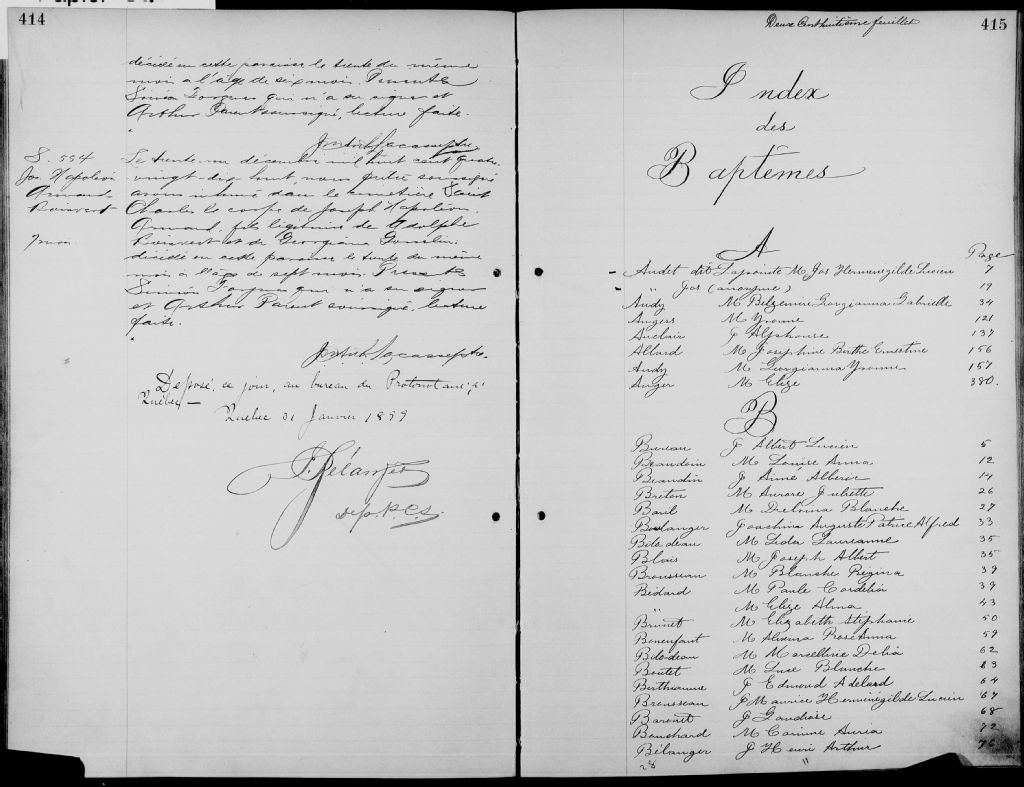 414
décédé en cette paroisse le trente du même
mois a l'âge de six mois. Présents
Siméon Forgues qui n'a su signer et
Arthur Parent soussigné, lecture faite.
S. 554
Jos. Napoléon
Armand
Boisvert
7 mois
Le trente-un décembre mil huit cent quatre
vingt-dix-huit nous prêtre soussigné
avons inhumé dans le cimetière Saint
Charles le corps de Joseph Napoléon
Armand, fils légitime de Adolphe
Boisvert et de Georgiana Gosselin,
décédé en cette paroisse le trente du même
mois à l'âge de sept mois. Présents
Siméon Forgues qui n'a su signer
et Arthur Parent soussigné, lecture
faite.
Déposé, ce jour, au bureau du Protonotaire, à
Québec —
Québec 31 Janvier 1899
Dep. P.C.S.
Deux Cent huitième feuillet
415
Index
des
Baptêmes
A
Page
Audet dit Lapointe M. Jos Hermenegilde Lucien 7
" Jos (anonyme) 19
Audy M Belzemire Georgianna Gabrielle 34
Angers M Yvonne 121
Auclair J Alphonse 137
Allard M Josephine Berthe Ernestine 156
Audy M Georgianna Yvonne 157
Auger M Elize 380.
B
Bureau J Albert Lucien 5
Beaudoin M Louise Anna 12
Beaudin J Aimé Alberic 14
Breton M Aurore Juliette 26
Baril M Delvina Blanche 27
Boulanger Joachim Auguste Patrice Alfred 33
Bilodeau M Leda Laureanne 35
Blais M Joseph Albert 35
Brousseau M Blanche Régina 39
Bédard M Paule Cordelia 39
" M Elize Alma 43
Brunet M Elizabeth Stéphanie 50
Bonenfant M Alexina Rose Anna 59
Bilodeau M Marcelline Delia 62
Boutet M Luce Blanche 63
Berthiaume J Edmond Adelard 64
Brousseau J Maurice Herménégilde Lucien 67
Baronet J Gaudiose 68
Bouchard M Corinne Auria 72
Bélanger J Henri Arthur 76
28 "